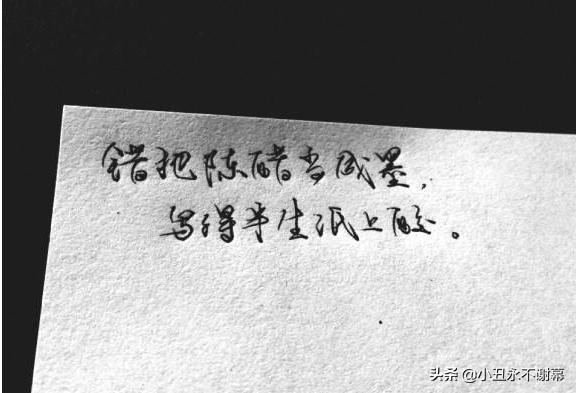 错把陈醋当成墨，
写得半生纸上酸。
头条 @小丑永不谢幕